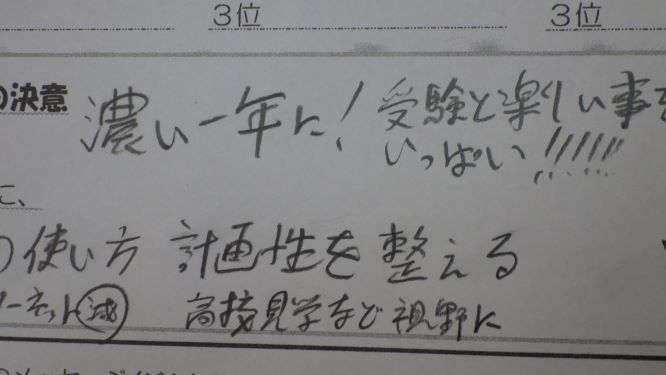 3位 3位
の決意 濃い一年に! 受験と楽しい事を
いっぱい!!!!!!
に、
の使い方 計画性を整える
ーネット減 高校見学など視野に